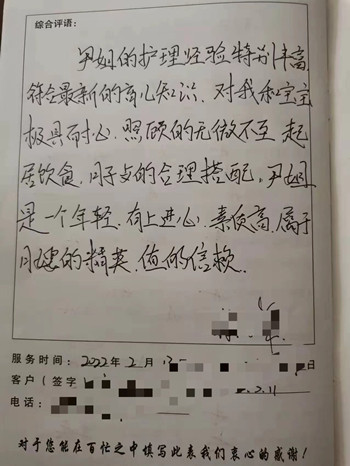 综合评语:
尹姐的护理经验特别丰富,
符合最新的育儿知识、对我和宝宝
极具耐心、照顾的无微不至、起
居饮食、月子点的合理搭配,尹姐
是一个年轻、有上进心、素质高、属于
月嫂的精英、值的信赖
服务时间:2022年2月 日
客户(签字)
电话:
对于您能在百忙之中填写此表我们衷心的感谢!